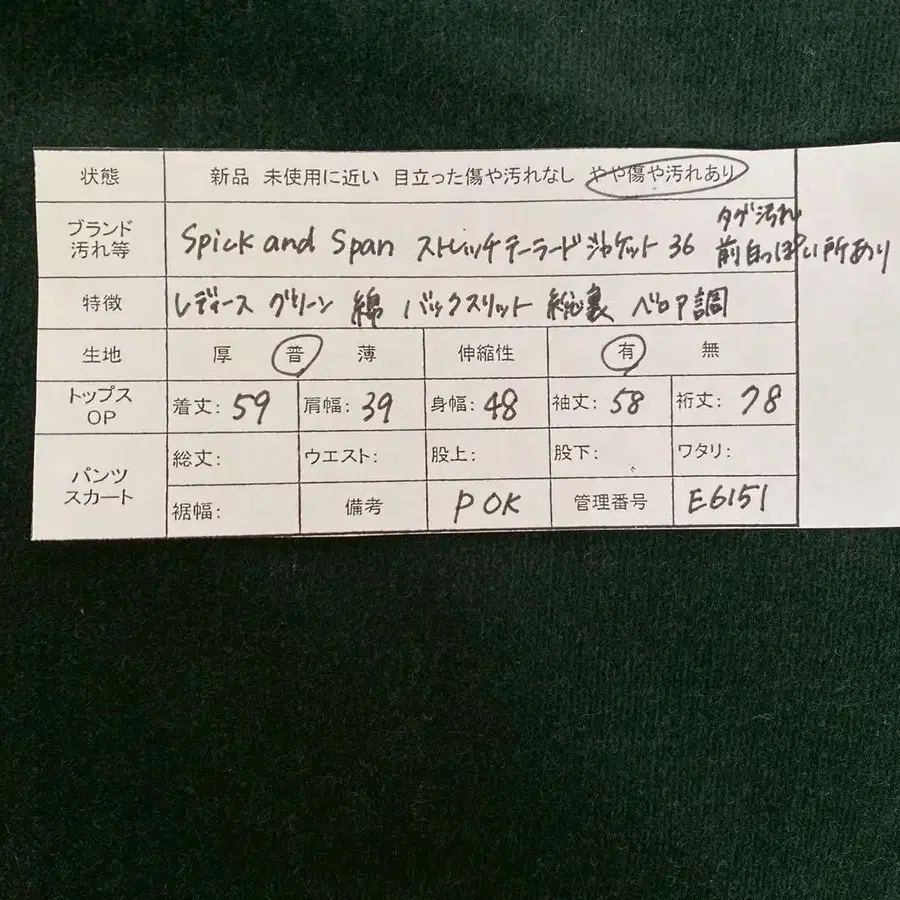 状態 新品 未使用に近い 目立った傷や汚れなし やや傷や汚れあり
ブランド 汚れ等 Spick and Span ストレッチテーラードジャケット 36 タグ汚れ
前白っぽい所あり
特徴 レディース グリーン 綿 バックスリット 総裏 ベロア調
生地 厚 普 薄 伸縮性 有 無
トップス OP 着丈: 59 肩幅: 39 身幅: 48 袖丈: 58 裄丈: 78
パンツ スカート 総丈: ウエスト: 股上: 股下: ワタリ:
裾幅: 備考 P OK 管理番号 E6151